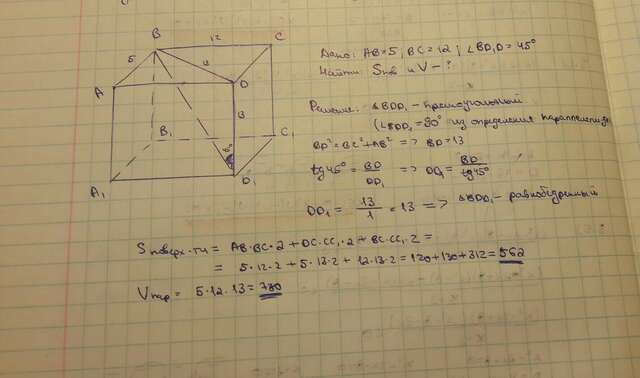 12
B
C
5
A
D
13
B₁
C₁
A₁
D₁
Дано: AB=5, BC=12; ∠BD₁D=45°
Найти: Sпов и V-?
Решение: △BDD₁ - прямоугольный
(∠BDD₁=90° из определения параллелепипеда
BD²=BC²+AB² => BD=13
tg45° = BD/DD₁ => DD₁ = BD/tg45°
DD₁ = 13/1 = 13 => △BDD₁ - равнобедренный
Sповерх-ти = AB·BC·2 + DC·CC₁·2 + BC·CC₁·2 =
= 5·12·2 + 5·13·2 + 12·13·2 = 120+130+312 = 562
Vпар = 5·12·13 = 780